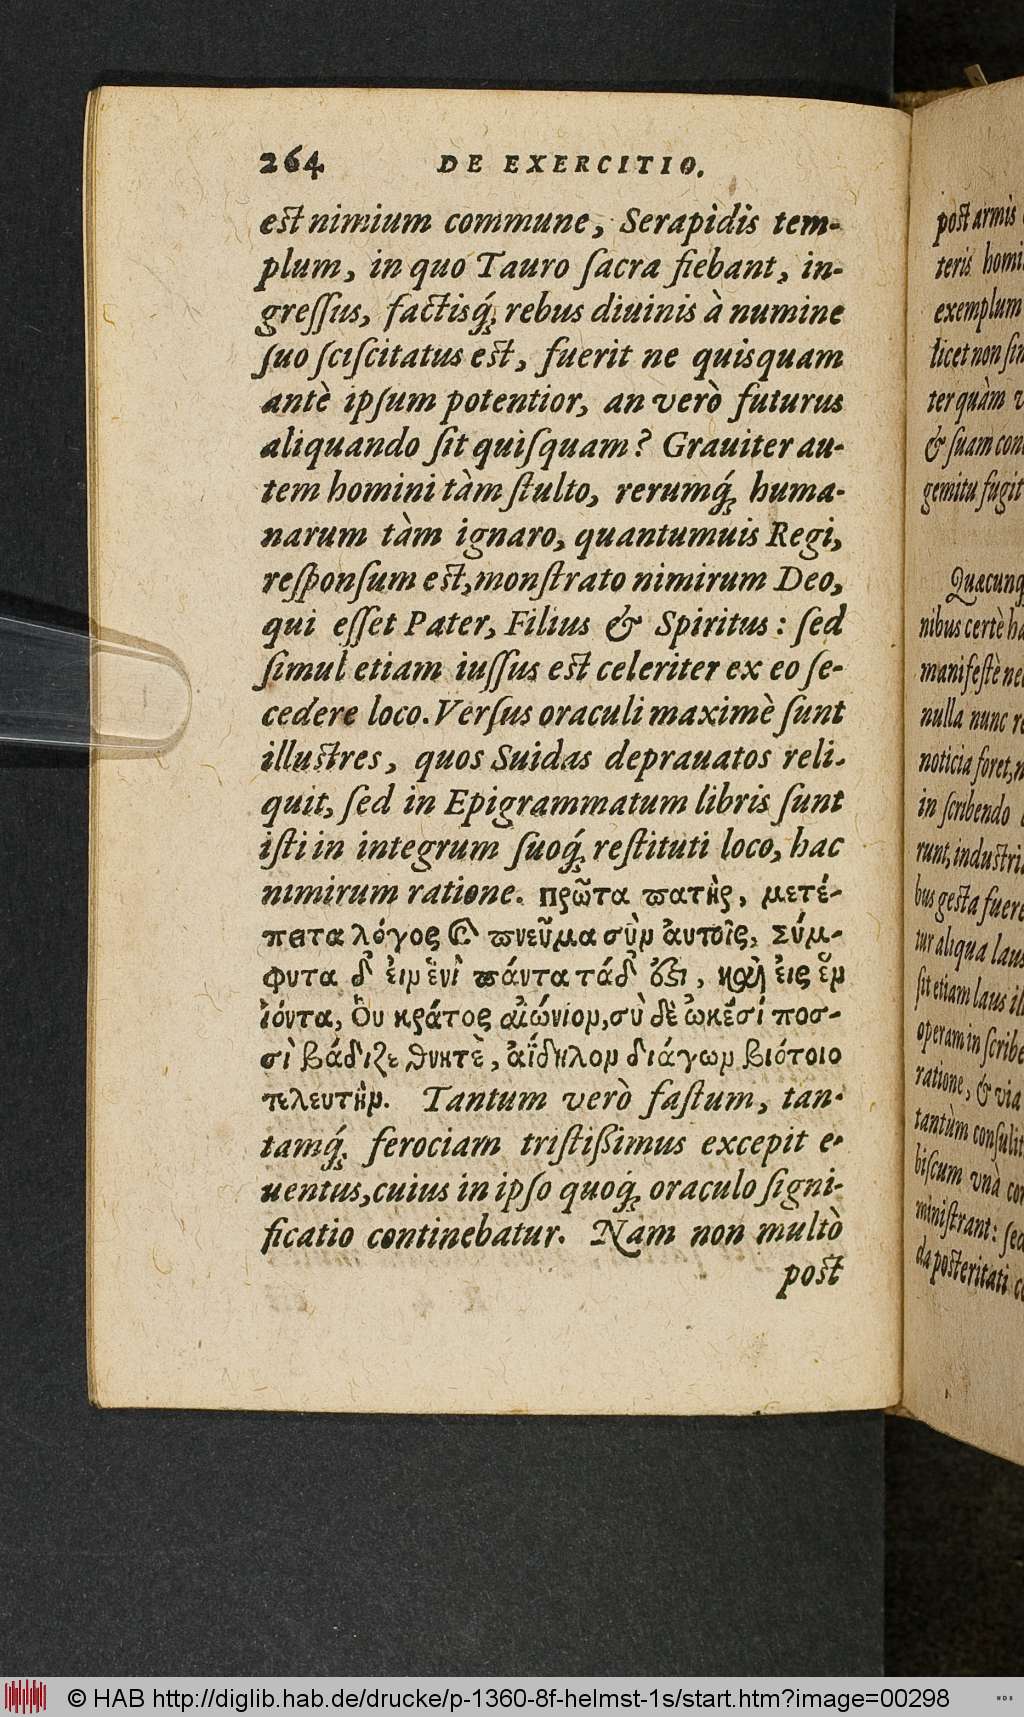 264 DE EXERCITIO.
est nimium commune, Serapidis tem-
plum, in quo Tauro ſacra fiebant, in-
greſſus, factisq́; rebus diuinis à numine
ſuo ſciſcitatus est, fuerit ne quisquam
antè ipſum potentior, an verò futurus
aliquando ſit quiſquam? Grauiter au-
tem homini tàm ſtulto, rerumq́; huma-
narum tàm ignaro, quantumuis Regi,
reſponſum est, monſtrato nimirum Deo,
qui eſſet Pater, Filius & Spiritus: ſed
ſimul etiam iuſſus est celeriter ex eo ſe-
cedere loco. Verſus oraculi maximè ſunt
illustres, quos Suidas deprauatos reli-
quit, ſed in Epigrammatum libris ſunt
iſti in integrum ſuoq́; reſtituti loco, hac
nimirum ratione. πρῶτα πατὴρ, μετέ-
πειτα λόγος καὶ πνεῦμα σὺν ἀυτοῖς, Σύμ-
φυτα δ' ἐιν ἑνὶ πάντα τάδ' ὄξι, καὶ ἐις ἓν
ἰόντα, Ὃυ κράτος αἰώνιον, σὺ δὲ ὠκέσί ποσ-
σὶ βάδιζε θνητὲ, ἀΐδηλον διάγων βιότοιο
τελευτὴν. Tantum verò faſtum, tan-
tamq́; ferociam triſtißimus excepit e-
uentus, cuius in ipſo quoq́; oraculo ſigni-
ficatio continebatur. Nam non multò
post
post armis
teris homi
exemplum
licet non ſin
ter quàm v
& ſuam con
gemitu fugit
Quæcunq
nibus certè ha
manifeſtè ne
nulla nunc re
noticia foret, n
in ſcribendo
runt, induſtri
bus gesta fuere
tur aliqua laus
ſit etiam laus il
operam in ſcribe
ratione, & via
tantùm conſulit
biſcum vnà con
miniſtrant: ſed
da poſteritati co
© HAB http://diglib.hab.de/drucke/p-1360-8f-helmst-1s/start.htm?image=00298